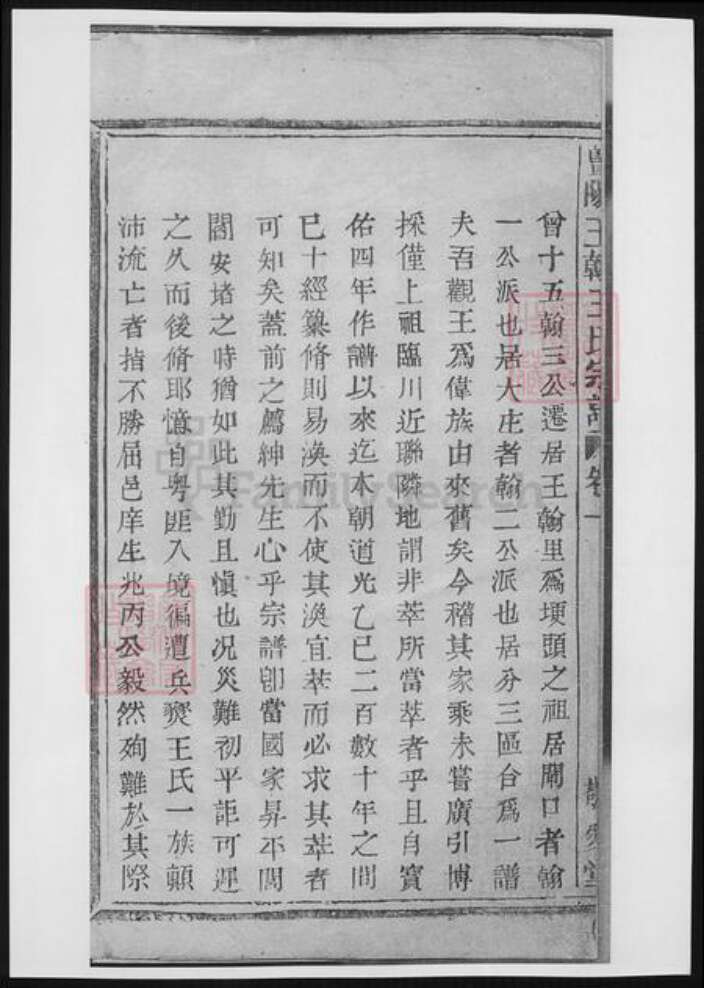 陽王韓王氏宗譜 卷一
曾十五翰三公遷居王翰里爲埂頭之祖居閘口者翰
一公派也居大庄者翰二公派也居分三區台爲一譜
夫吾觀王爲偉族由來舊矣今稽其家乘未嘗廣引博
採僅上祖臨川近聯隣地謂非萃所當萃者乎且自寳
佑四年作譜以來迄本朝道光乙巳二百數十年之間
已十經纂脩則易渙而不使其渙宜萃而必求其萃者
可知矣蓋前之薦紳先生心乎宗譜卽當國家昇平閭
閻安堵之時猶如此其勤且愼也况災難初平詎可遲
之久而後脩耶憶自粤匪入境徧遭兵燹王氏一族顚
沛流亡者指不勝屈邑庠生兆丙公毅然殉難於其際
FamilySearch